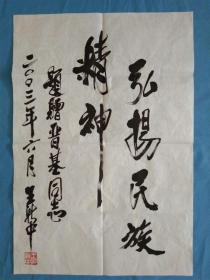 弘揚民族
精神
題贈晋基同志
二〇〇三年六月